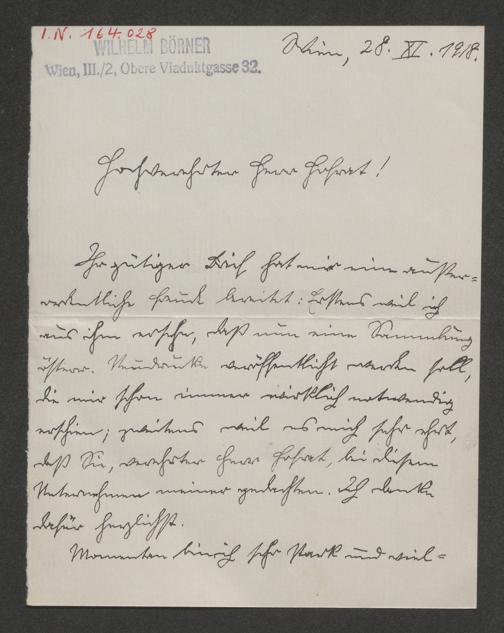 I.N. 164.028
WILHELM BÖRNER
Wien, III./2, Obere Viaduktgasse 32.
Wien, 28. XI. 1918.
Hochverehrter Herr Hofrat!
Ihr gütiger Brief hat mir eine außer-
ordentliche Freude bereitet: Erstens weil ich
aus ihm ersehe, daß nun eine Sammlung
österr. Neudrucke veröffentlicht werden soll,
die mir schon immer wirklich notwendig
erschien; zweitens weil es mich sehr ehrt,
daß Sie, verehrter Herr Hofrat, bei diesem
Unternehmen meiner gedachten. Ich danke
dafür herzlichst.
Momentan bin ich sehr stark und viel-